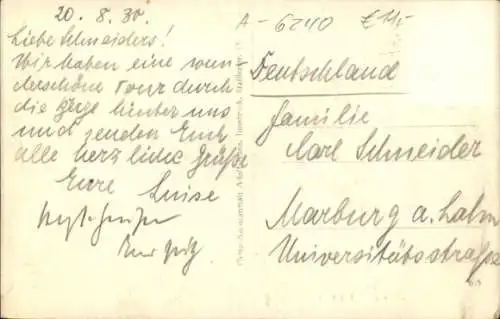 20. 8. 30.
Liebe Schneiders!
Wir haben eine wun-
derschöne Tour durch
die hinter uns
und senden Euch
alle herzliche Grüße
Eure Luise
A - 6240
Deutschland
Familie
Karl Schneider
Marburg a. Lahn
Universitätsstraße